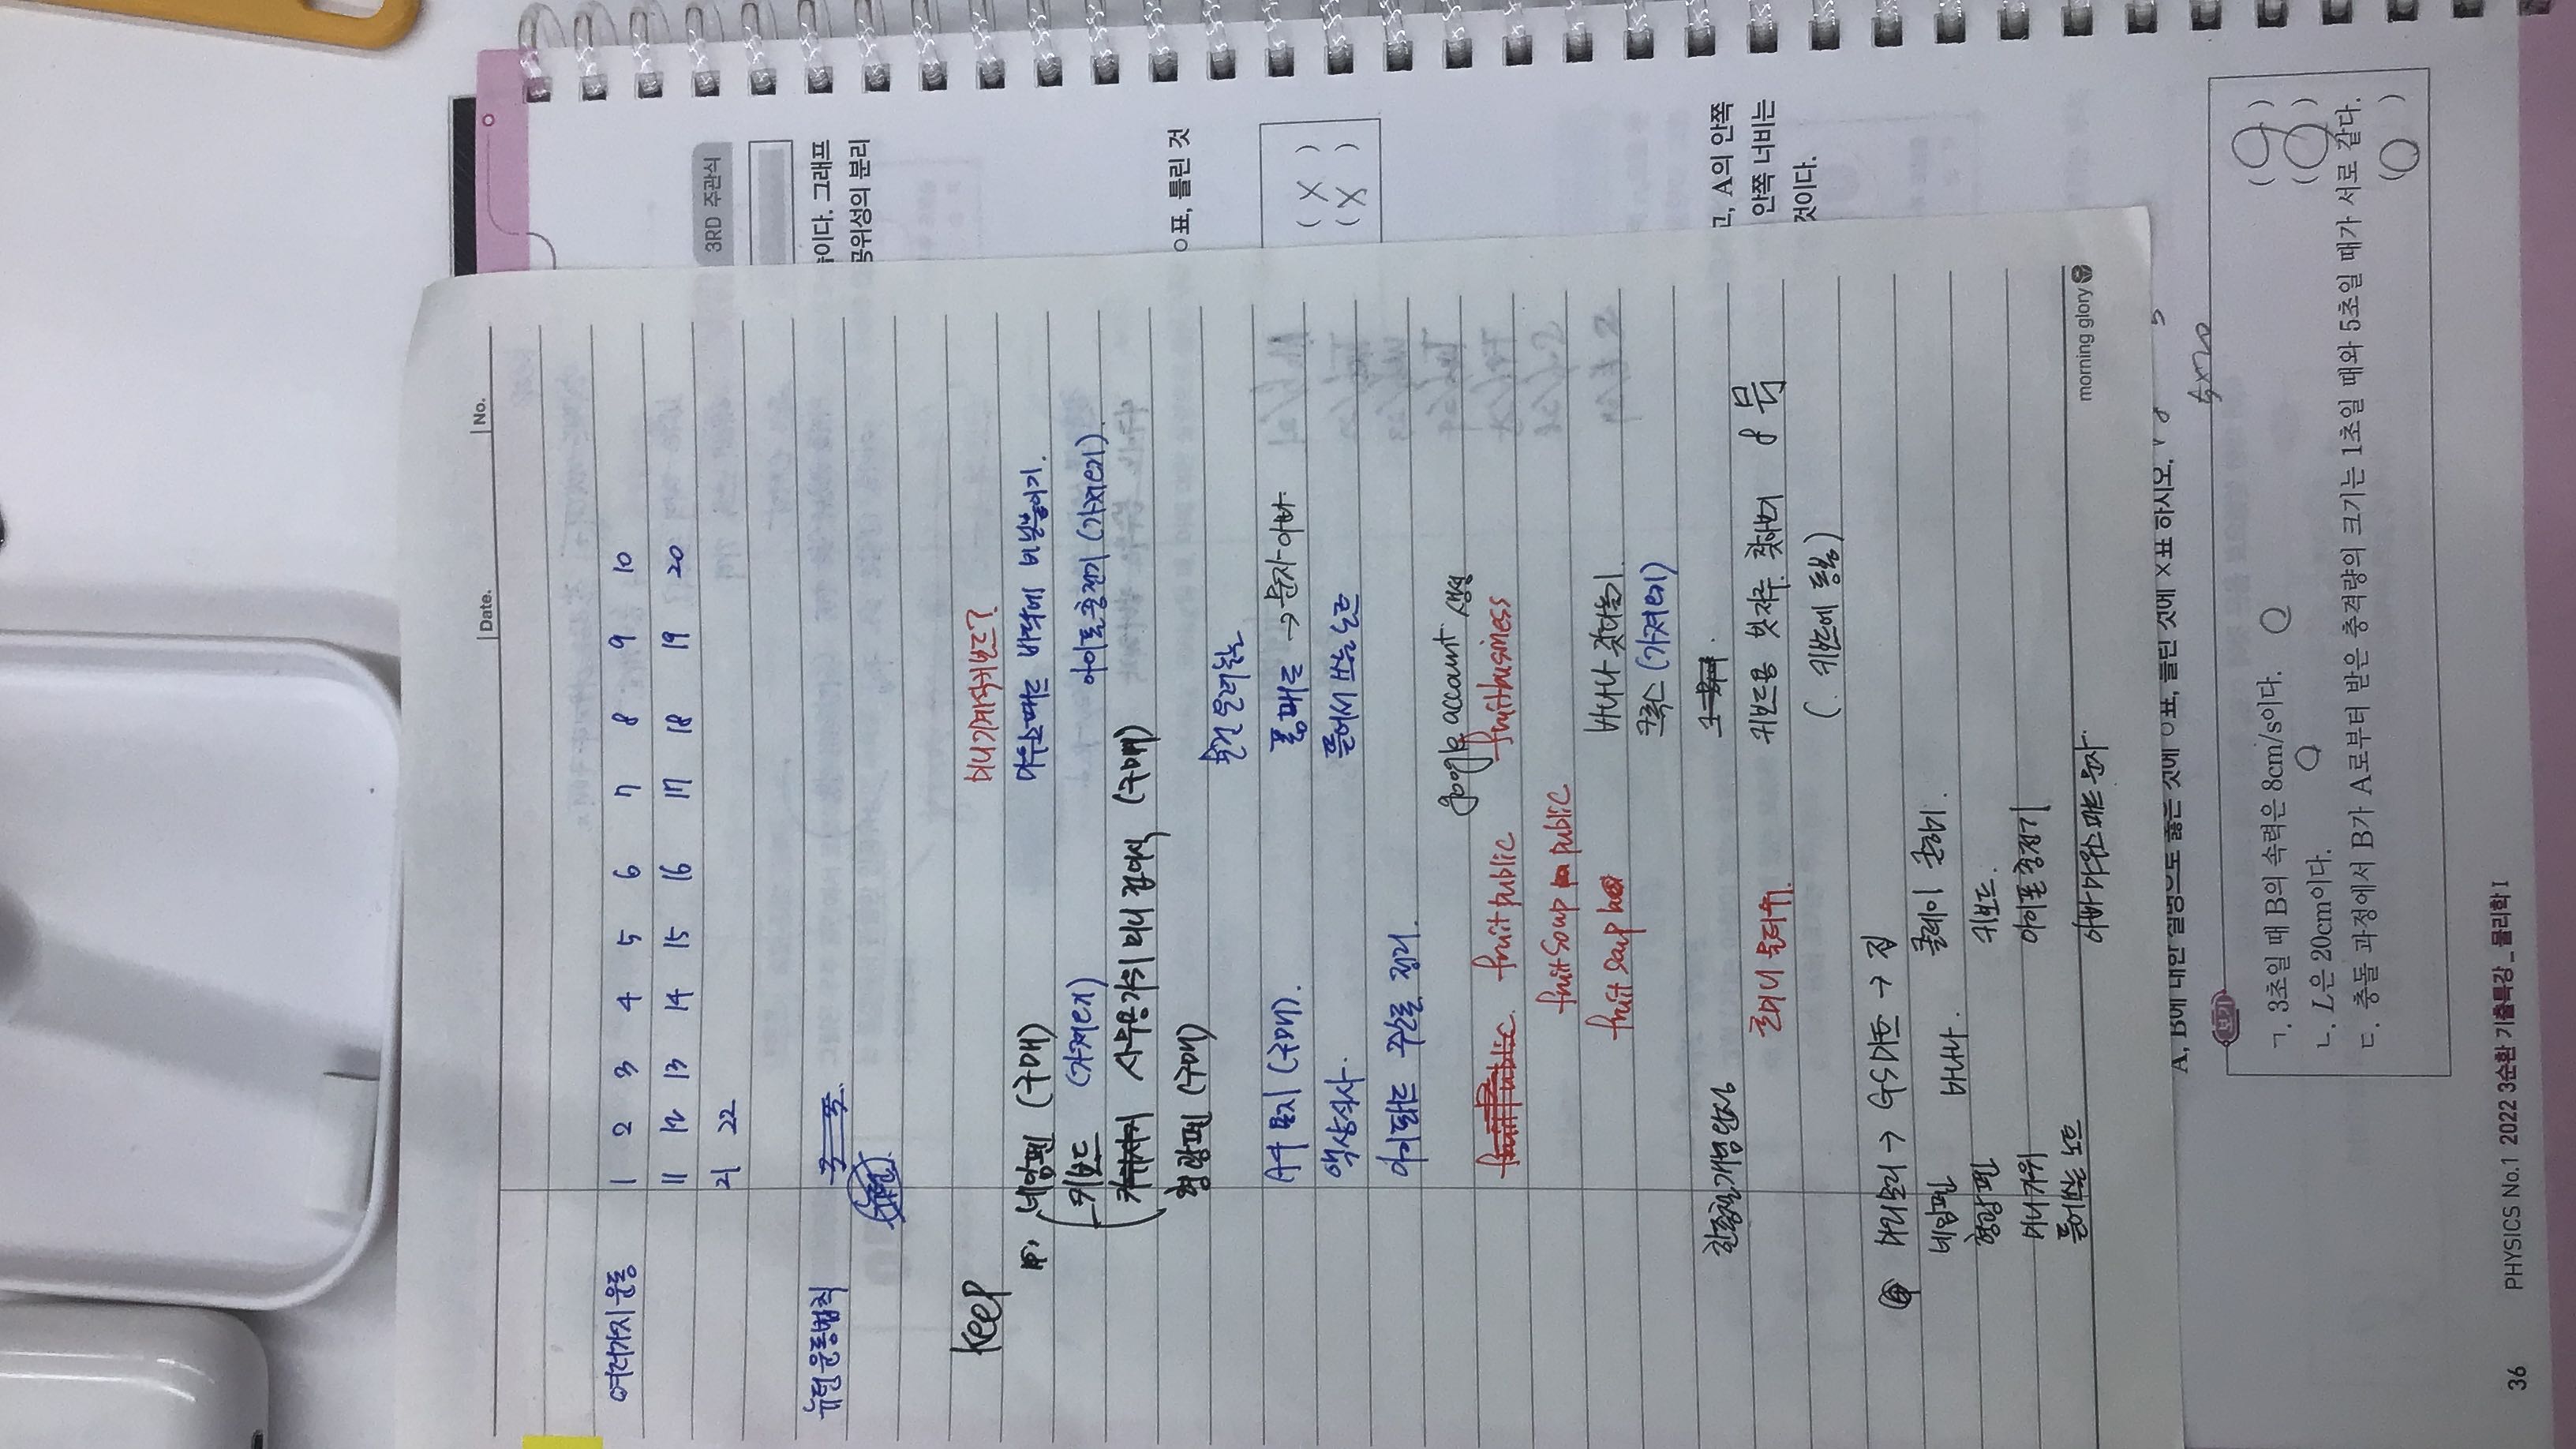 Date. No.
여러가지 운동 1 2 3 4 5 6 7 8 9 10
11 12 13 14 15 16 17 18 19 20
21 22
뉴턴 운동법칙
keep
미니 기계식 키보드?
네임펜 (구매)
마우스패드 바닥에 비닐붙이기.
키보드 (가져오기)
아이폰 충전기 (가져오기).
사무용가위 미니 접이식 (구매)
형광펜 (구매)
물건 올려놓는
A4 용지 (구매).
폼패드 → 문자 아빠.
액상식사.
뜯어서 쓰는 노트
아이패드 정리.
google account 생성
fruit public fruitbusiness
fruit soup public
fruit soup
바나나 갖다놓기.
크록스 (가져오기)
한종철 개념완성
키보드용 붓 자루 찾아보기
(키보드에 동봉)
→ GS마트 → 집
네임펜 바나나. 클레이
형광펜 키보드.
미니가위 아이폰 충전기
뜯어쓰는 노트
아빠 마우스 패드 문자.
morning glory
3RD 주관식
이다. 그래프
공위성의 분리
○표, 틀린 것
( X )
( X )
고, A의 안쪽
안쪽 너비는
것이다.
A, B에 대한 설명으로 옳은 것에 ○표, 틀린 것에 ×표 하시오.
5×20
보기
ㄱ. 3초일 때 B의 속력은 8cm/s이다. ( O )
ㄴ. L은 20cm이다. ( O )
ㄷ. 충돌 과정에서 B가 A로부터 받은 충격량의 크기는 1초일 때와 5초일 때가 서로 같다.
( O )
36 PHYSICS No.1 2022 3순환 기출특강_물리학 I